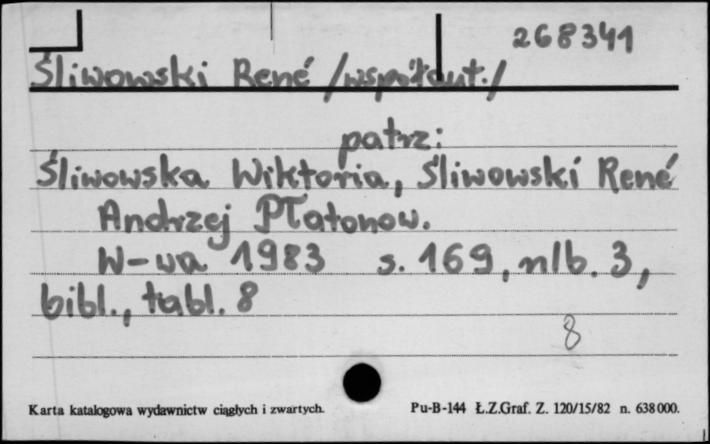 268341
Śliwowski René /współaut./
patrz:
Śliwowska Wiktoria, Śliwowski René
Andrzej Płatonow.
W-wa 1983 s. 169, nlb. 3,
bibl., tabl. 8
8
Karta katalogowa wydawnictw ciągłych i zwartych.
Pu-B-144 Ł.Z.Graf. Z. 120/15/82 n. 638000.